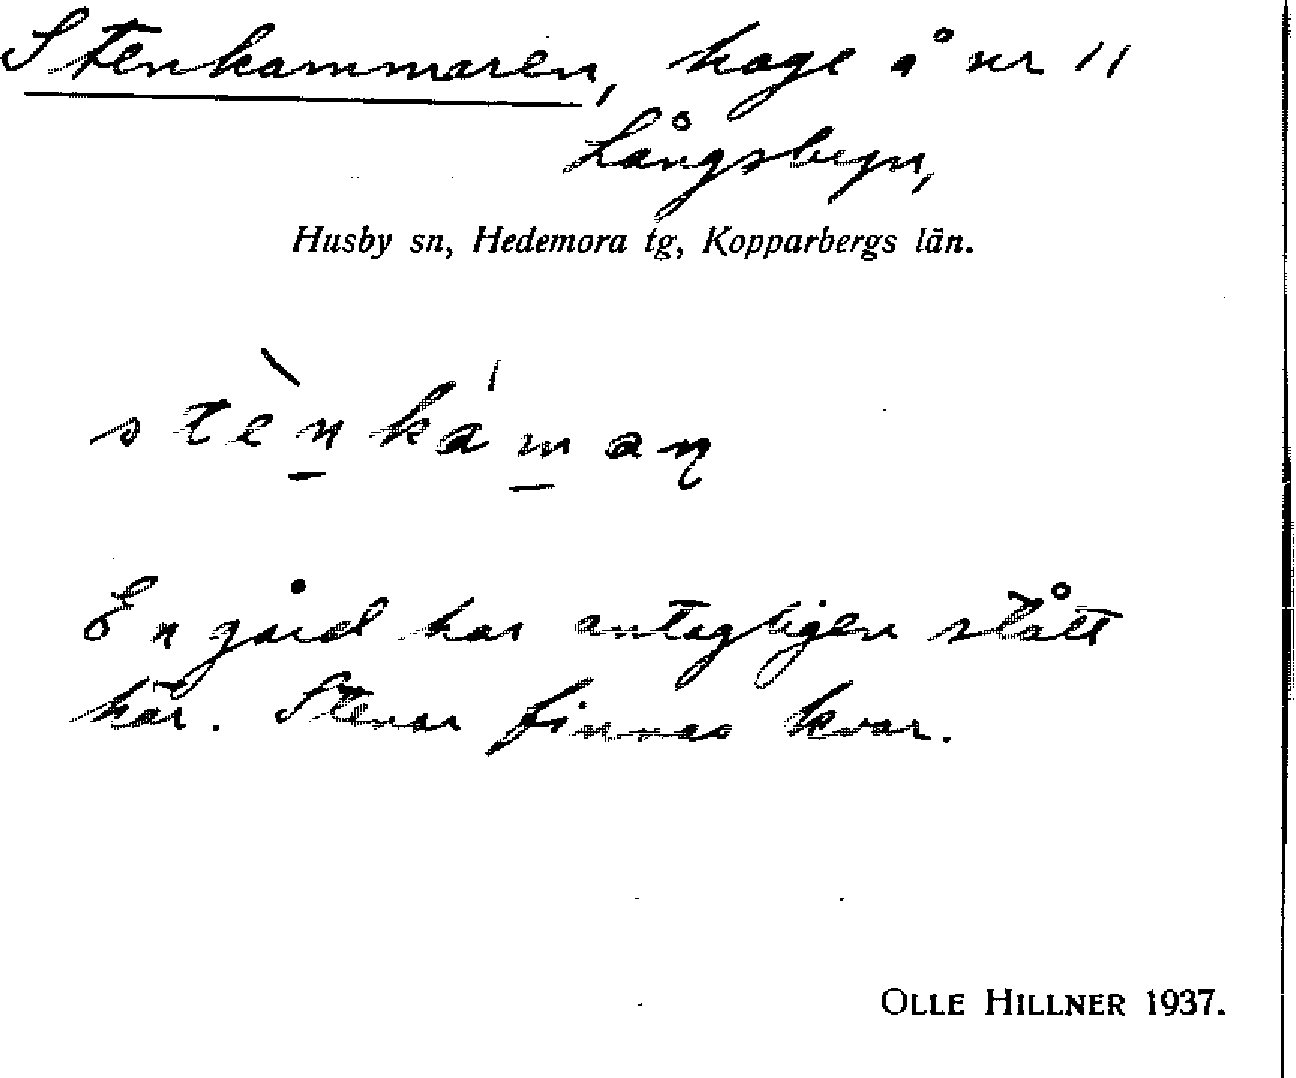 Stenkammaren, hage å nr 11
Långsbyn,
Husby sn, Hedemora tg, Kopparbergs län.
stènkáman̡
En gård har antagligen stått
här. Stenar finnas kvar.
OLLE HILLNER 1937.